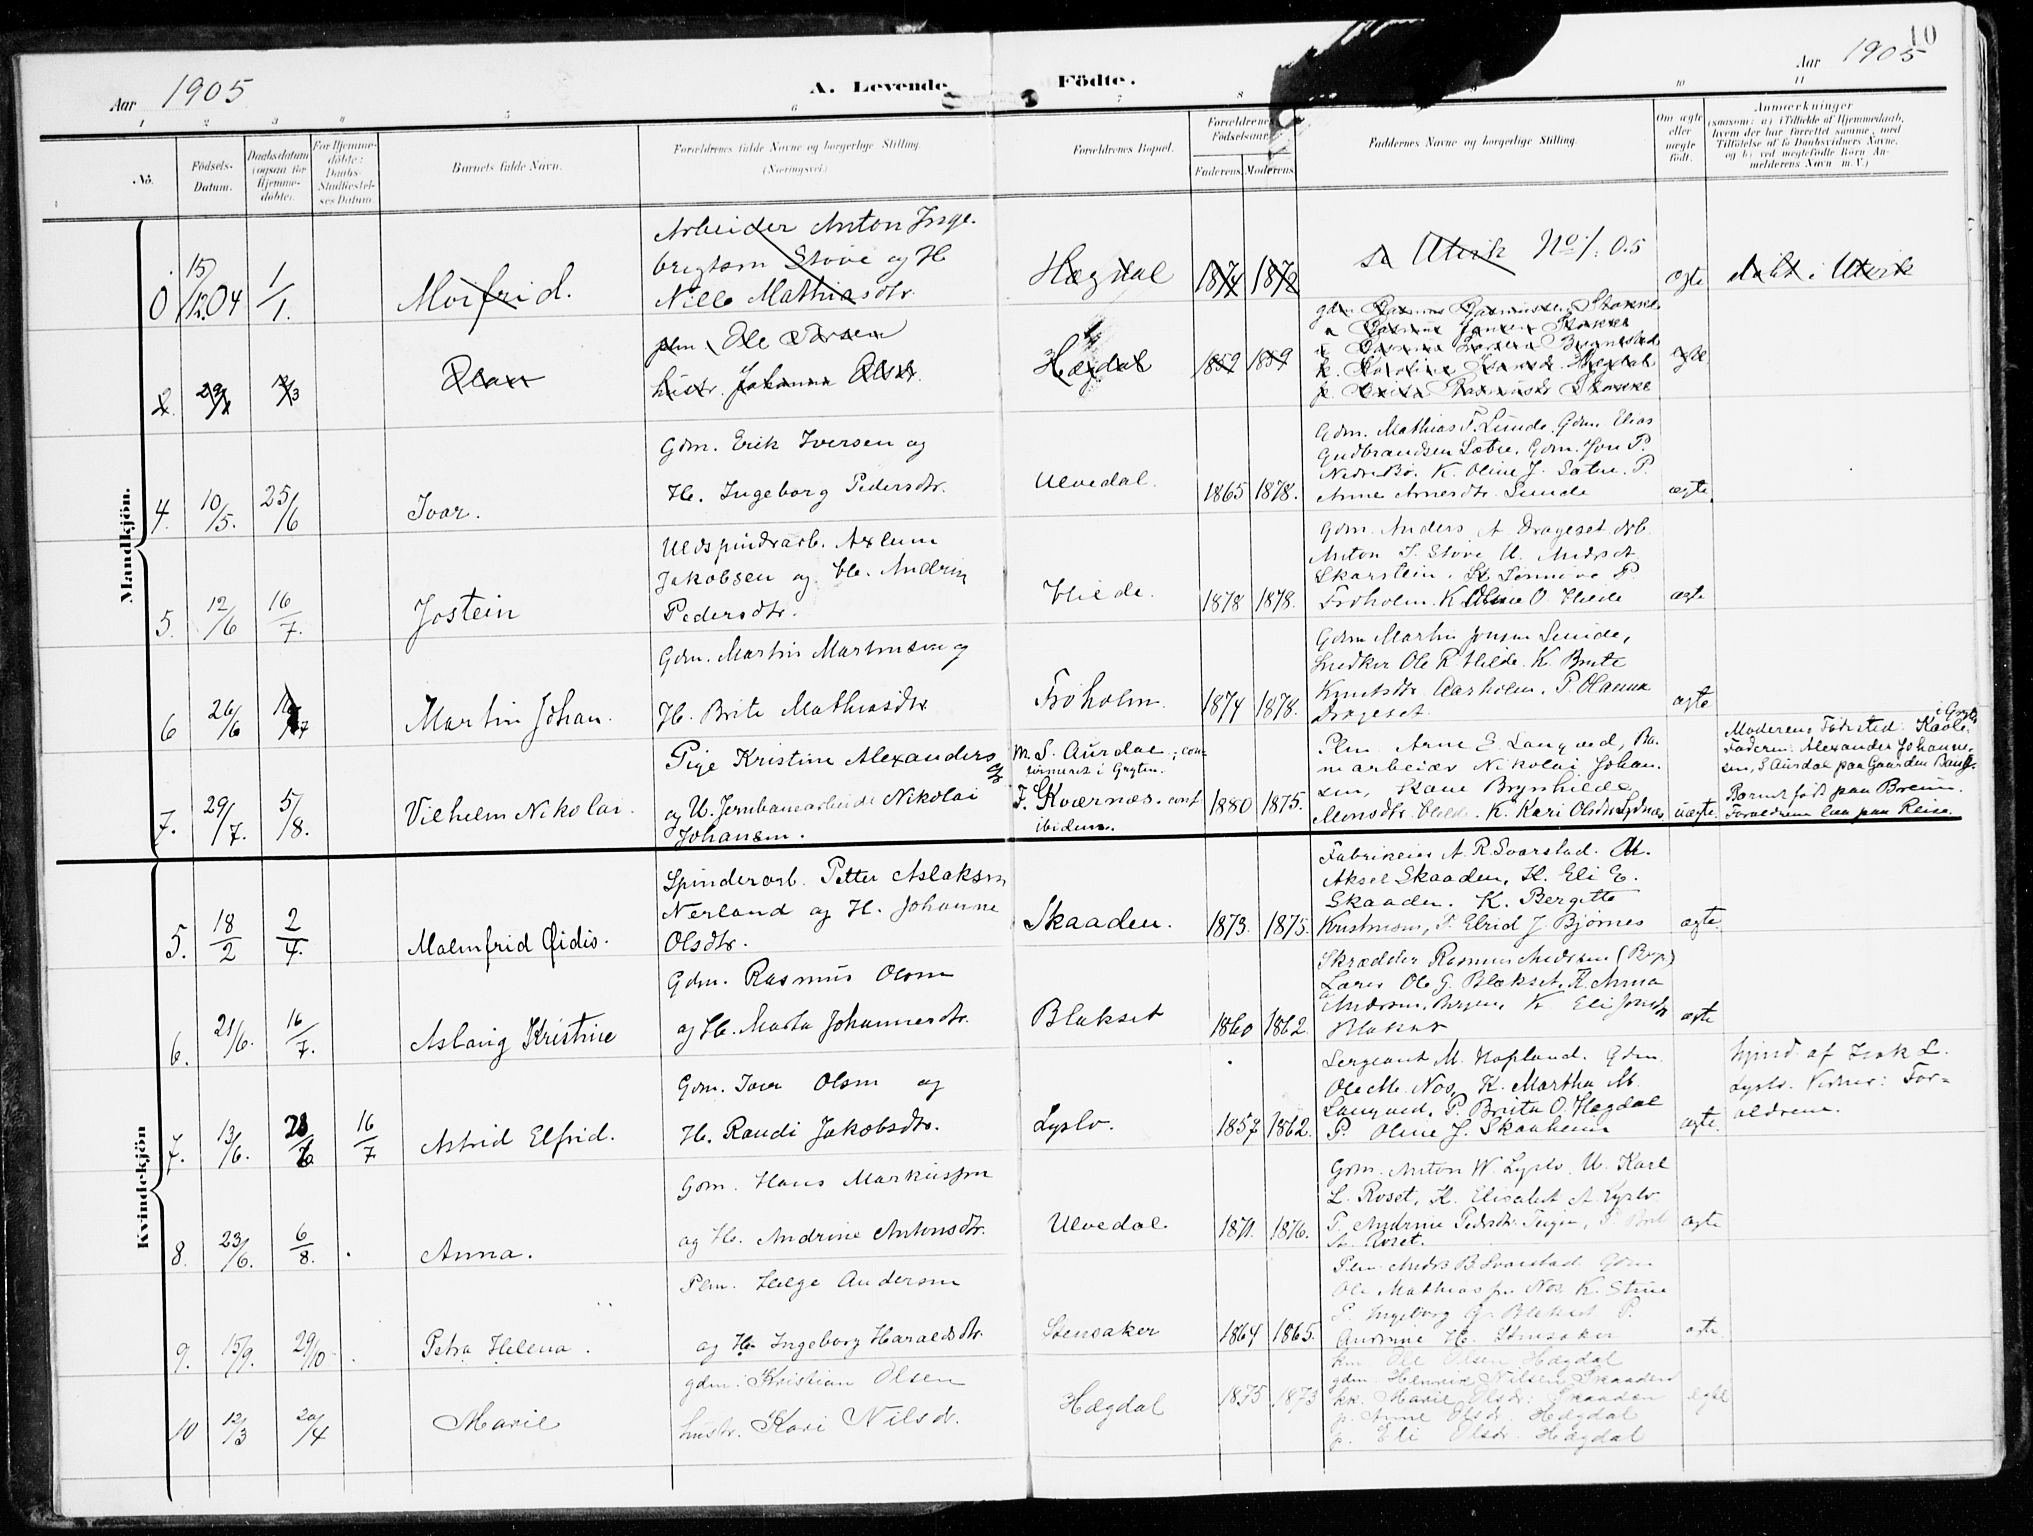 10
Aar 1905
A. Levende Födte.
Aar 1905
1 2 3 4 5 6 7 8 10 11
No.
Födsels-Datum.
Daabsdatum (ogsaa for Hjemmedöbte).
For Hjemmedöbte: Daabs-Stadfæstelses Datum.
Barnets fulde Navn.
Forældrenes fulde Navne og borgerlige Stilling.
(Næringsvei.)
Forældrenes Bopæl.
Forældrenes Födselsaar.
Faderens Moderens
Faddernes Navne og borgerlige Stilling.
Om ægte eller uægte födt.
Anmærkninger
(saasom: a) i Tilfælde af Hjemmedaab, hvem der har forrettet samme, med Tilföielse af to Daabsvidners Navne, og b) ved uægtefödte Börn Anmelderens Navn m. V.)
Mandkjön.
0 15/12 04 1/1. Morfrid.
Arbeider Anton Inge-
brigtsen Stove og H
Nille Mathiasdtr.
Hægdal 1874 1872
se Utvik No 1. 05
ægte døbt i Utvik
2. 29/1 3/3 Olav
plm Ole Larsen
hustr. Johanna Olsdr.
Hægdal 1859 1859
gdm Rasmus Rasmussen Stokke
k. Karoline Hægdal
ægte
4. 10/5. 25/6 Ivar.
Gdm. Erik Iversen og
H. Ingeborg Pedersdtr.
Ulvedal. 1865 1878.
Gdm. Mathias T. Lunde. Gdm. Elias
Gudbrandsen Sætre. Gdm. Jon P.
Nedrebø. K. Oline J. Sætre. P.
Anne Arnesdtr. Lunde
ægte.
5. 12/6 16/7. Jostein
Uldspindrarb. Axlum
Jakobsen og H. Andrin
Pedersdtr.
Hilde. 1878 1878.
Gdm. Anders A Drageset Arb.
Anton I. Stove U. Andrs A
Skarstein. K Sønnive P
Froholm. K Oline O Hilde
ægte
6 26/6 16/7 Martin Johan.
Gdm. Martin Martinsen og
H. Brite Mathiasdtr
Froholm. 1874 1878.
Gdm Martin Jonsen Lunde,
Snedker Ole R. Hilde. K. Brite
Knutsdtr Aarholm. P. Olanna
Drageset.
ægte
7. 29/7. 5/8. Vilhelm Nikolai.
Pige Kristine Alexandersdtr
og U. Jernbanearbeider Nikolai
Johansen.
M. S. Aurdal, con-
firmeret i Gryten.
F. Kværnæs. conf
ibidem.
1880 1875.
Plm Arne E. Langved, Ba-
nearbeider Nikolai Johan-
sen, Kone Brynhilde
Monsdtr. Hilde. K. Kari Olsdtr Sydnæs
uægte.
Moderens Fødested: Kaole
i Gryten
Faderen: Alexander Johanne-
sen, S Aurdal paa Gaarden Baug.
Barnet født paa Breim.
Forældrene bor paa Reise.
Kvindekjön
5. 18/2 2/4. Malmfrid Øidis.
Spinderarb. Petter Aslaksen
Nerland og H. Johanne
Olsdtr.
Skaaden. 1873. 1875.
Fabrikeier A. R. Svarstad. U.
Aksel Skaaden, K. Eli E.
Skaaden. K. Bergitte
Kristensen, P. Elrid J. Bjørnes
ægte.
6. 21/6. 16/7. Aslaug Kristine
Gdm. Rasmus Olsen
og H. Marta Johannesdtr.
Blakset 1860 1862.
Skrædder Rasmus Andersen (Berg.)
Lærer Ole G. Blakset, K. Anna
Andersen, Bergen, K Eli Jonsdtr
Blakset
ægte
7. 13/6. 28/6 16/7 Astrid Elfrid.
Gdm. Iver Olsen og
H. Randi Jakobsdtr.
Lyslo. 1857 1862.
Sergeant M. Hopland. Gdm.
Ole M. Nos, K. Martha M.
Langved. P. Brita O. Hægdal
P. Oline J. Skaaheim
ægte.
hjemd. af Isak L.
Lyslo. Vidner: For-
ældrene.
8. 23/6. 6/8. Anna.
Gdm. Hans Markussen
og H. Andrine Antonsdtr.
Ulvedal. 1871. 1876.
Gdm. Anton W. Lyslo, U. Karl
L. Roset, K. Elisabet A. Lyslo
P. Andrine Pedersdtr.
Roset.
ægte
9. 15/9. 29/10 Petra Helena.
Plm. Helge Andersen
og H. Ingeborg Haraldsdtr.
Stensaker 1864 1865.
Plm Andrs B Svarstad Gdm
Ole Mathiassen Nos. K. Stine
P. Ingeborg G. Blakset P.
Andrine H. Stensaker
ægte
10 12/3 20/4 Marie
gdm. Kristian Olsen
hustr. Kari Nilsdr.
Hægdal 1875 1873
km Ole Olsen Hægdal
gdm. Henrik Nilsen Skaaden
kk. Marie Olsdr: Skaaden
p. Anne Olsdr. Hægdal
p. Eli Olsdr. Hægdal
ægte